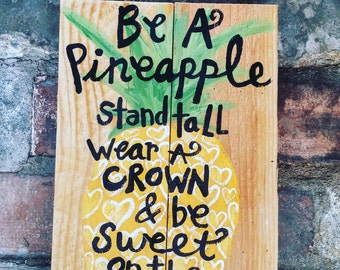 Be A
Pineapple
stand tall
wear A
CROWN
& be
sweet
on the